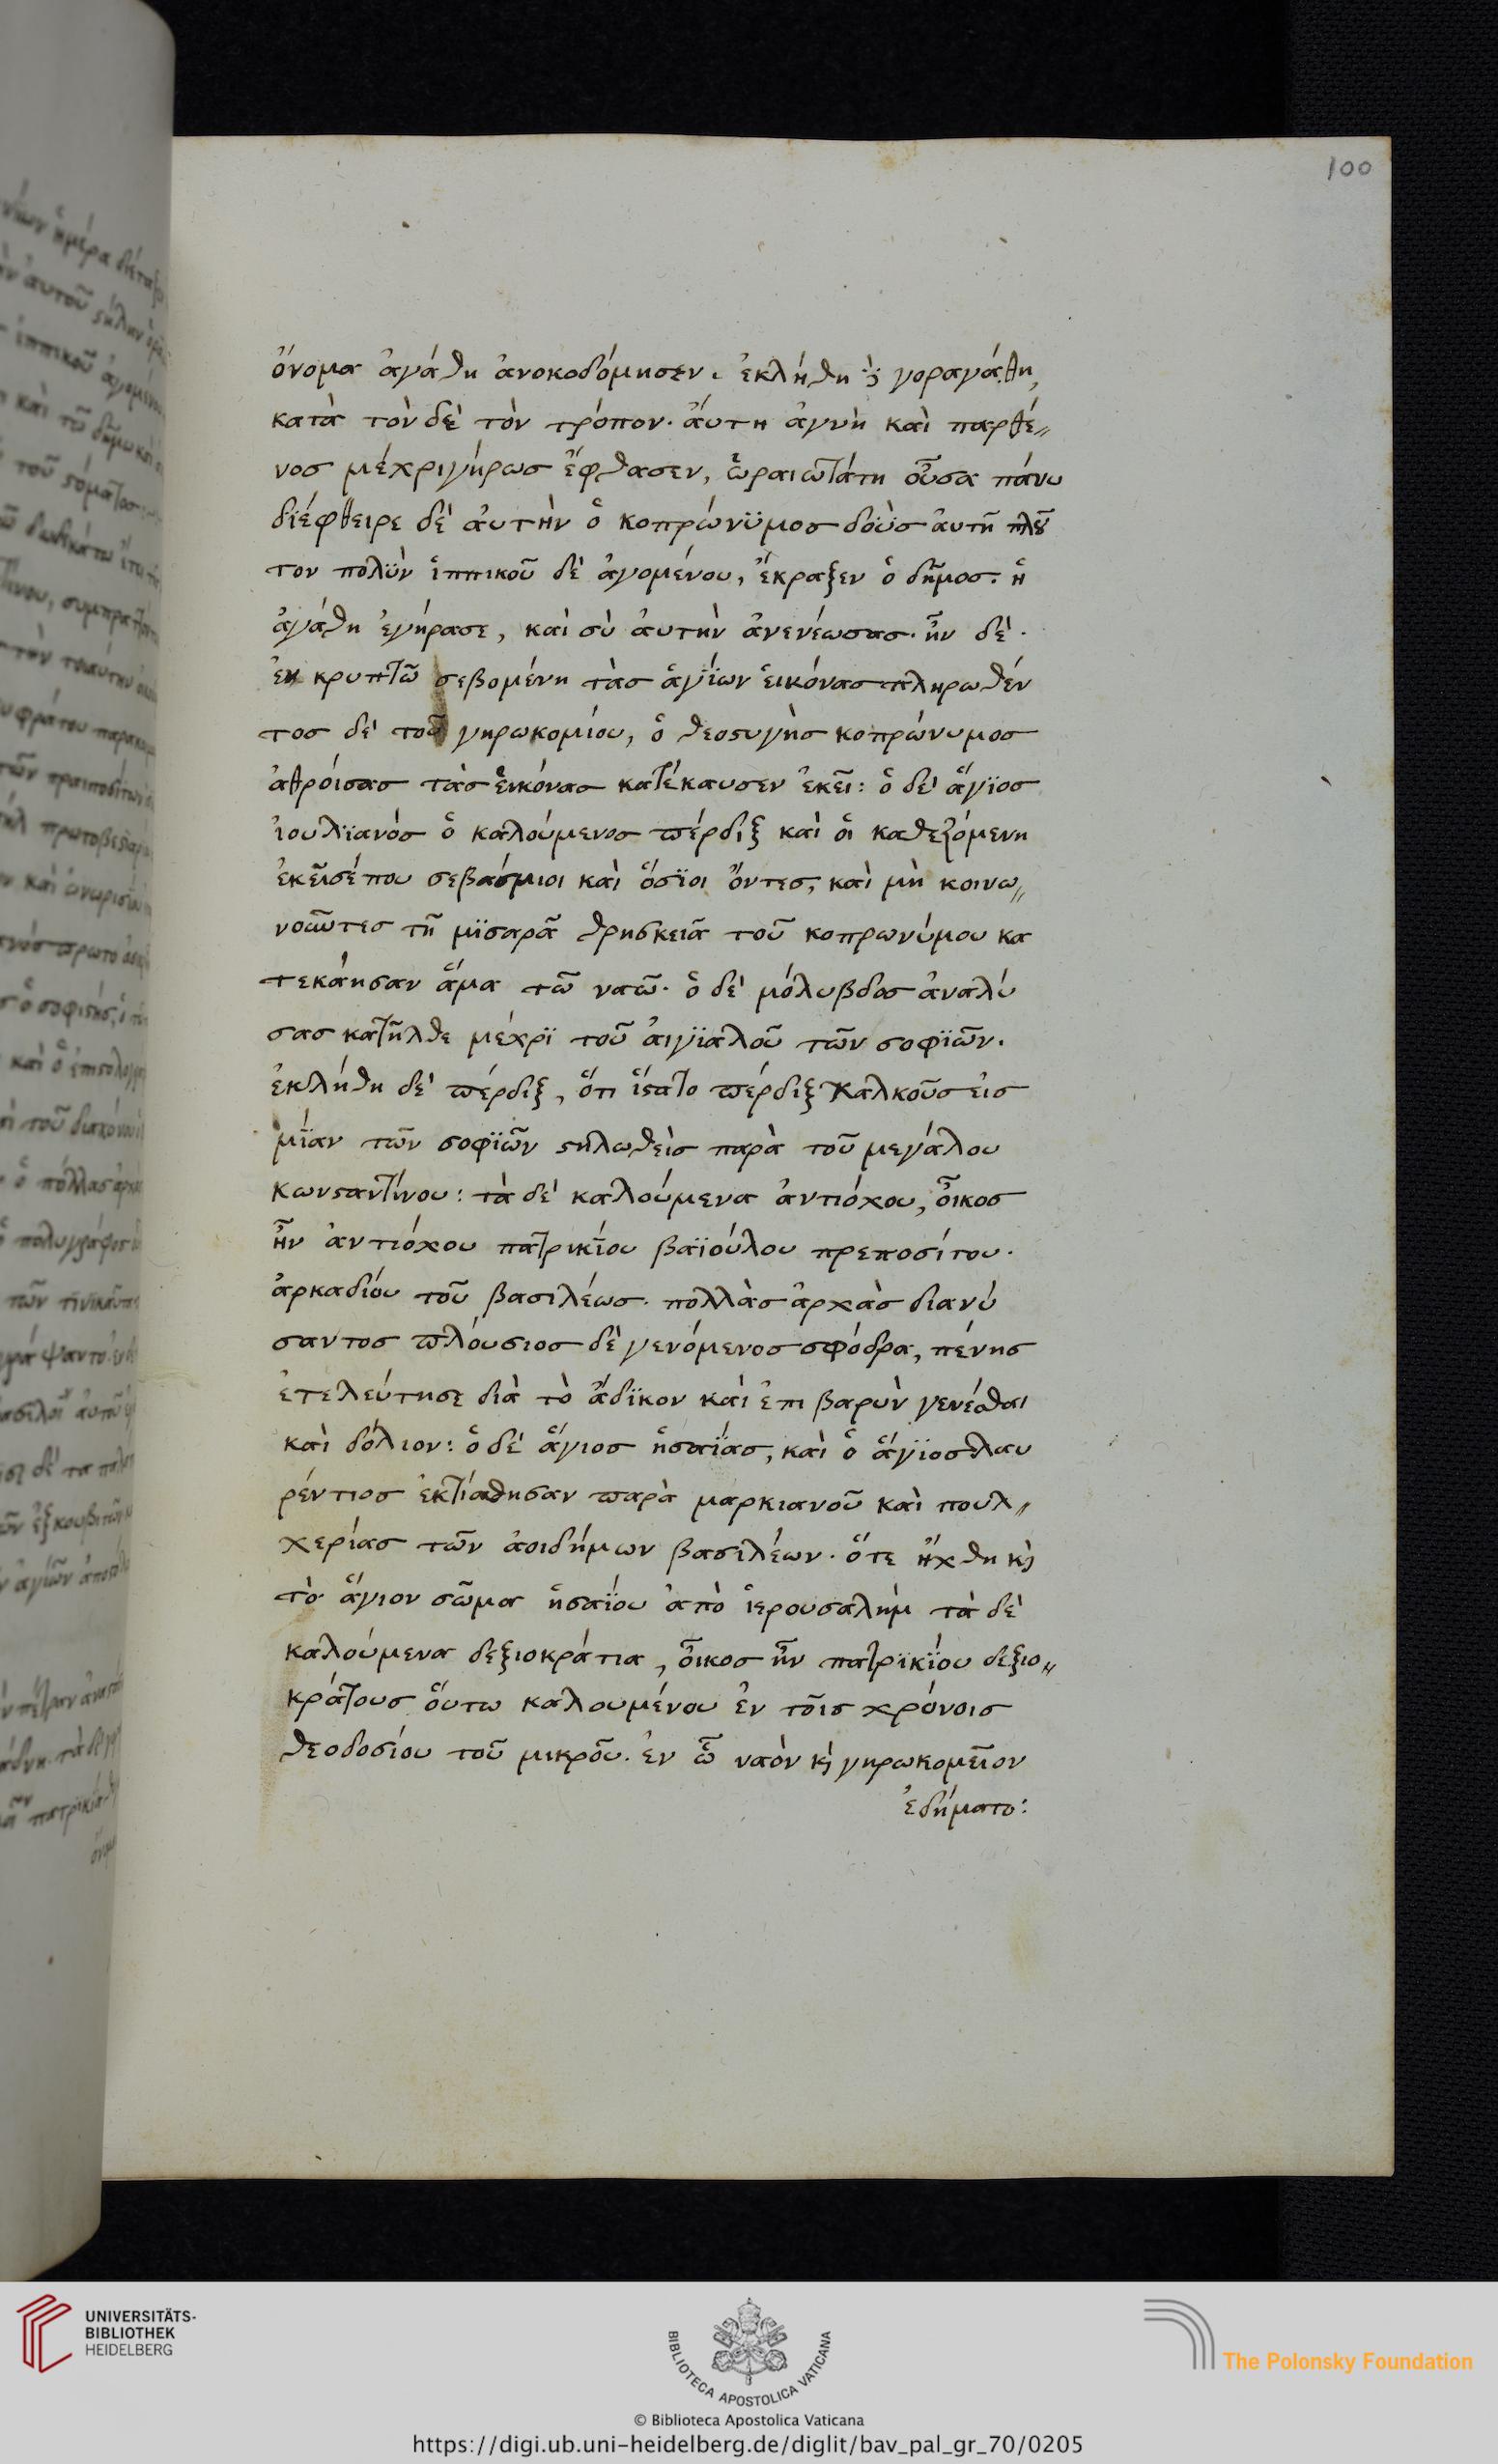 100
ὄνομα ἀγάθη ἀνοκοδόμησεν. ἐκλήθη γοραγάθη,
κατὰ τὸν δὲ τὸν τρόπον. ἄυτη ἁγνὴ καὶ παρθέ〃
νος μέχριγήρως ἔφθασεν, ὡραιωτάτη οὖσα πάνυ
διέφθειρε δὲ ἀυτὴν ὁ κοπρώνϋμος δοὺς ἀυτῆ πλοῦ
τον πολϋν ἱππικοῦ δὲ ἀγομένου, ἔκραξεν ὁ δῆμος. ἡ
ἀγάθη ἐγήρασε, καὶ σὺ ἀυτὴν ἀνενέωσας. ἦν δὲ.
ἐν κρυπτῶ σεβομένη τὰς ἁγΐων ἐικόνας πληρωθέν
τος δὲ τοῦ γηρωκομίου, ὁ θεοστυγὴς κοπρώνυμος
ἀθρόισας τὰς ἐικόνας κατέκαυσεν ἐκεῖ: ὁ δὲ ἅγϊος
ἰουλϊανὸς ὁ καλούμενος πέρδιξ καὶ ὁι καθεζόμενη
ἐκεῖσέπου σεβάσμιοι καὶ ὅσϊοι ὄντες, καὶ μὴ κοινω〃
νοῶντες τῆ μϊσαρᾶ θρησκεία τοῦ κοπρωνύμου κα
τεκάησαν ἅμα τῶ ναῶ. ὁ δὲ μόλυβδος ἀναλύ
σας κατῆλθε μέχρϊ τοῦ ἀιγϊαλοῦ τῶν σοφϊῶν.
ἐκλήθη δὲ πέρδιξ, ὅτι ἵστατο πέρδιξ καλκοῦς ἐις
μΐαν τῶν σοφϊῶν στηλωθεὶς παρὰ τοῦ μεγάλου
κωνσταντίνου: τὰ δὲ καλούμενα ἀντιόχου, οἶκος
ἦν ἀντιόχου πατρικίου βαϊούλου πρεποσίτου.
ἀρκαδίου τοῦ βασιλέως. πολλὰς ἀρχὰς διανύ
σαντος πλόυσιος δὲ γενόμενος σφόδρα, πένης
ἐτελεύτησε διὰ τὸ ἄδϊκον καὶ ἐπι βαρὺν γενέσθαι
καὶ δόλιον: ὁ δὲ ἅγιος ἡσαΐας, καὶ ὁ ἅγϊος λαυ
ρέντιος ἐκτίσθησαν παρὰ μαρκιανοῦ καὶ πουλ〃
χερίας τῶν ἀοιδήμων βασιλέων. ὅτε ἤχθη κὶ
τὸ ἅγιον σῶμα ἡσαΐου ἀπὸ ἱερουσαλὴμ τὰ δὲ
καλούμενα δεξιοκράτια, οἶκος ἦν πατρϊκΐου δεξιο〃
κράτους ὅυτω καλουμένου ἐν τοῖς χρόνοις
θεοδοσίου τοῦ μικροῦ. ἐν ὧ ναὸν κὶ γηρωκομεῖον
ἐδήματο:
UNIVERSITÄTS-
BIBLIOTHEK
HEIDELBERG
BIBLIOTECA APOSTOLICA VATICANA
The Polonsky Foundation
© Biblioteca Apostolica Vaticana
https://digi.ub.uni-heidelberg.de/diglit/bav_pal_gr_70/0205